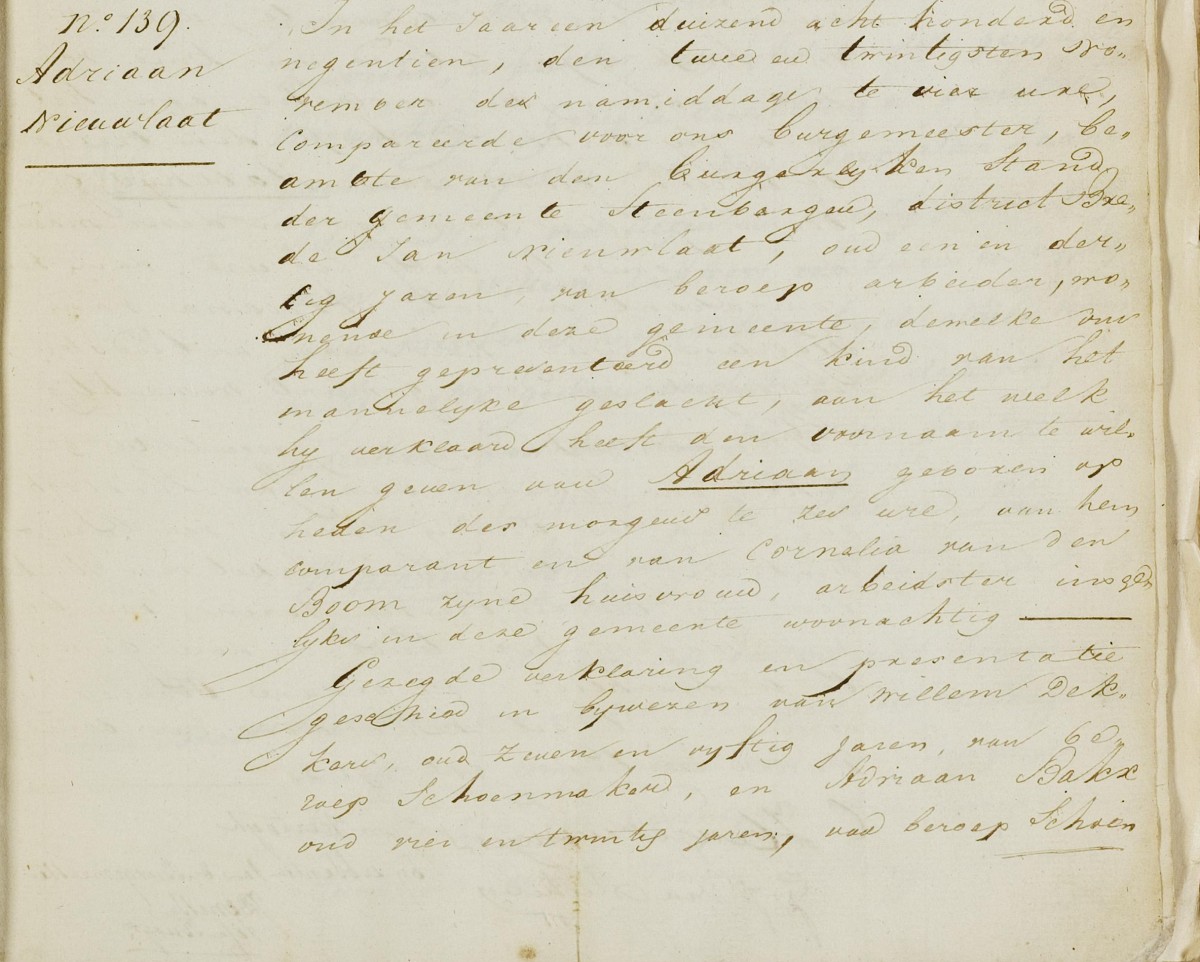 no. 139.
Adriaan
Nieuwlaat
In het Jaar een duizend acht honderd en
negentien, den twee en twintigsten No„
vember des namiddags te vier ure,
Compareerde voor ons Burgemeester, be„
ambte van den Burgerlyken Stand
der gemeente Steenbergen, district Bre„
da Jan Nieuwlaat, oud een en der„
tig Jaren, van beroep arbeider, wo„
nende in deze gemeente, dewelke ons
heeft gepresenteerd een kind van het
mannelyke geslacht, aan het welk
hy verklaard heeft den voornaam te wil„
len geven van Adriaan geboren op
heden des morgens te zes ure, van hem
comparant en van Cornelia van den
Boom zyne huisvrouw, arbeidster insge„
lyks in deze gemeente woonachtig
Gezegde verklaring en presentatie
geschied in bywezen van Willem Dek„
kers, oud zeven en vyftig jaren, van be„
roep Schoenmaker, en Adriaan Bakx
oud vier en twintig jaren, van beroep Schoen